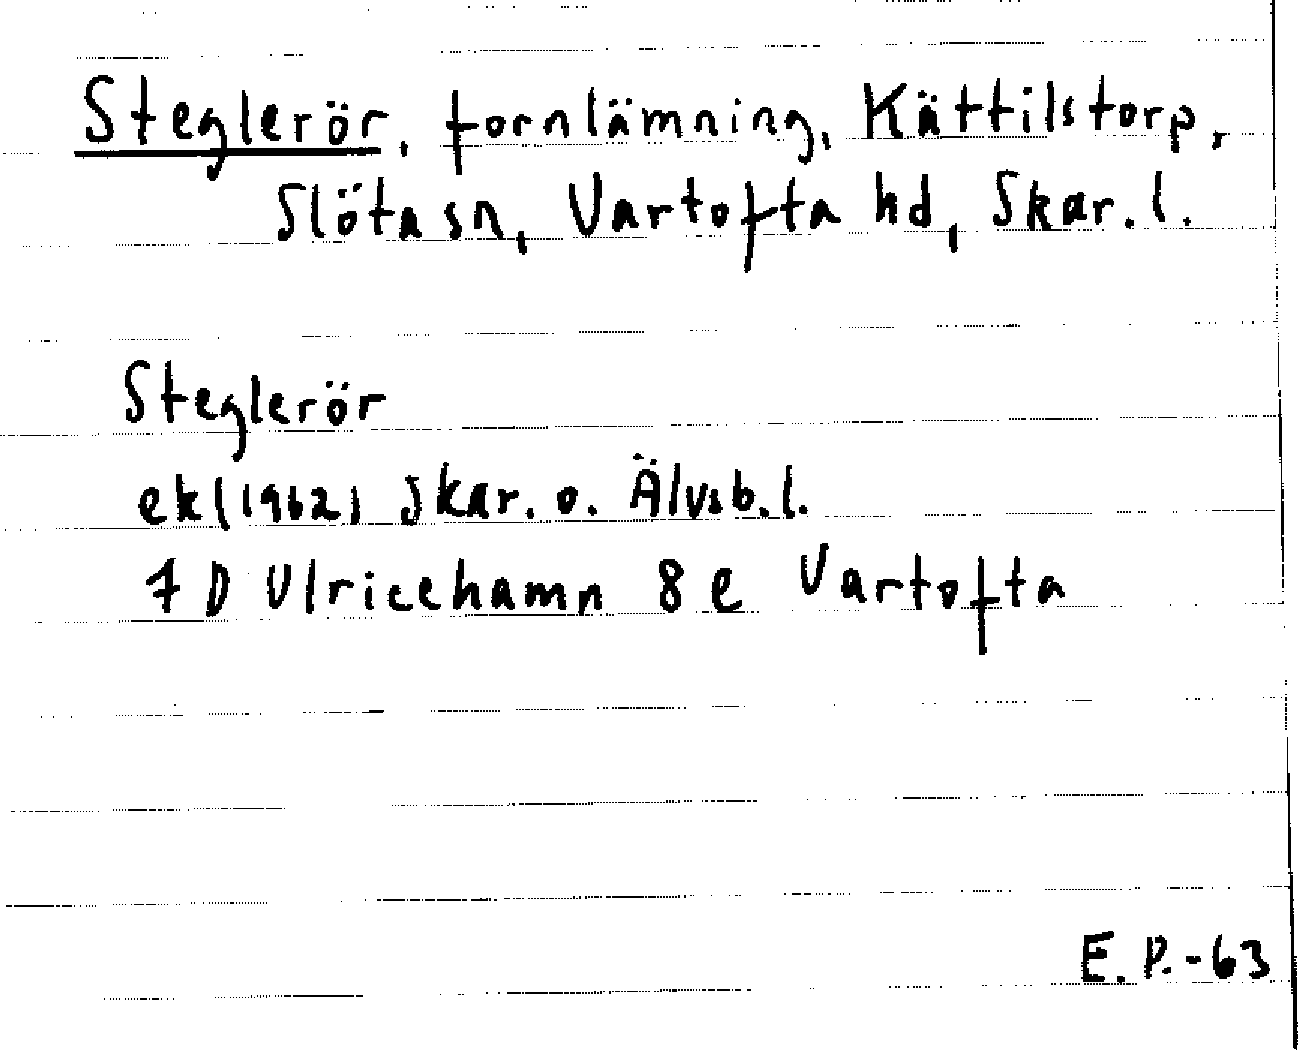 Steglerör, fornlämning, Kättilstorp,
Slöta sn, Vartofta hd, Skar. l.
Steglerör
ek (1962) Skar. o. Älvsb. l.
7 D Ulricehamn 8 e Vartofta
E. P. - 63